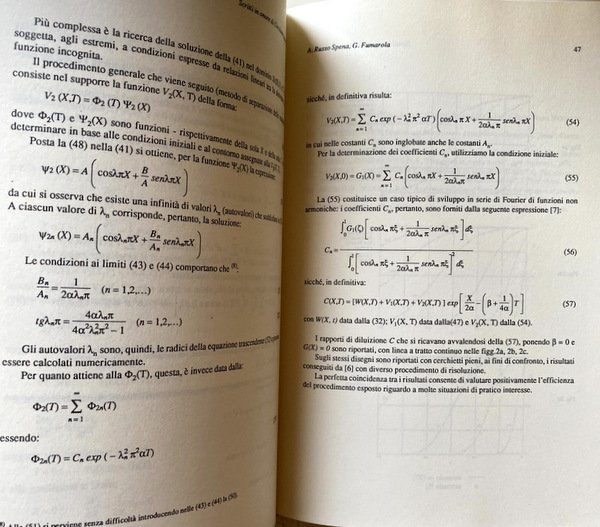 Scritti in onore di
Più complessa è la ricerca della soluzione della (41) nel dominio
soggetta, agli estremi, a condizioni espresse da relazioni lineari tra la
funzione incognita.
Il procedimento generale che viene seguito (metodo di separazione delle
consiste nel supporre la funzione V₂(X, T) della forma:
V₂ (X,T) = Φ₂ (T) Ψ₂ (X)
dove Φ₂(T) e Ψ₂(X) sono funzioni - rispettivamente della sola X e della sola
determinare in base alle condizioni iniziali e al contorno assegnate
Posta la (48) nella (41) si ottiene, per la funzione Ψ₂(X) la espressione:
Ψ₂ (X) = A ( cosλπX + B/A senλπX )
da cui si osserva che esiste una infinità di valori λ (autovalori) che
A ciascun valore di λ corrisponde, pertanto, la soluzione:
Ψ₂ₙ (X) = Aₙ ( cosλₙπX + Bₙ/Aₙ senλₙπX )
Le condizioni ai limiti (43) e (44) comportano che ⁽⁸⁾:
Bₙ/Aₙ = 1/(2αλₙπ) (n = 1,2,...)
tgλₙπ = 4αλₙπ/(4α²λₙ²π² − 1) (n = 1,2,...)
Gli autovalori λₙ sono, quindi, le radici della equazione trascendente
essere calcolati numericamente.
Per quanto attiene alla Φ₂(T), questa, è invece data dalla:
Φ₂(T) = ∑ₙ₌₁^∞ Φ₂ₙ(T)
essendo:
Φ₂ₙ(T) = Cₙ exp ( − λₙ² π² αT)
(51) si perviene senza difficoltà introducendo nelle (43) e (44) la (50).
A. Russo Spena, G. Fumarola 47
sicché, in definitiva risulta:
V₂(X,T) = ∑ₙ₌₁^∞ Cₙ exp (−λₙ² π² αT) ( cosλₙ π X + 1/(2αλₙ π) senλₙπX ) (54)
in cui nelle costanti Cₙ sono inglobate anche le costanti Aₙ.
Per la determinazione dei coefficienti Cₙ, utilizziamo la condizione iniziale:
V₂(X,0) = G₁(X) = ∑ₙ₌₁^∞ Cₙ ( cosλₙ πX + 1/(2αλₙπ) senλₙπX ) (55)
La (55) costituisce un caso tipico di sviluppo in serie di Fourier di funzioni non
armoniche: i coefficienti Cₙ, pertanto, sono forniti dalla seguente espressione [7]:
Cₙ = ∫₀¹ G₁(ζ) [ cosλₙ πξ + 1/(2αλₙ π) senλₙπξ ] dξ / ∫₀¹ [ cosλₙ πξ + 1/(2αλₙ π) senλₙπξ ]² dξ (56)
sicché, in definitiva:
C(X,T) = [W(X,T) + V₁(X,T) + V₂(X,T) ] exp [ X/2α − ( β + 1/4α ) T ] (57)
con W(X, t) data dalla (32); V₁(X, T) data dalla(47) e V₂(X, T) dalla (54).
I rapporti di diluizione C che si ricavano avvalendosi della (57), ponendo β = 0 e
G(X) = 0 sono riportati, con linea a tratto continuo nelle figg.2a, 2b, 2c.
Sugli stessi disegni sono riportati con cerchietti pieni, ai fini di confronto, i risultati
conseguiti da [6] con diverso procedimento di risoluzione.
La perfetta coincidenza tra i risultati consente di valutare positivamente l'efficienza
del procedimento esposto riguardo a molte situazioni di pratico interesse.